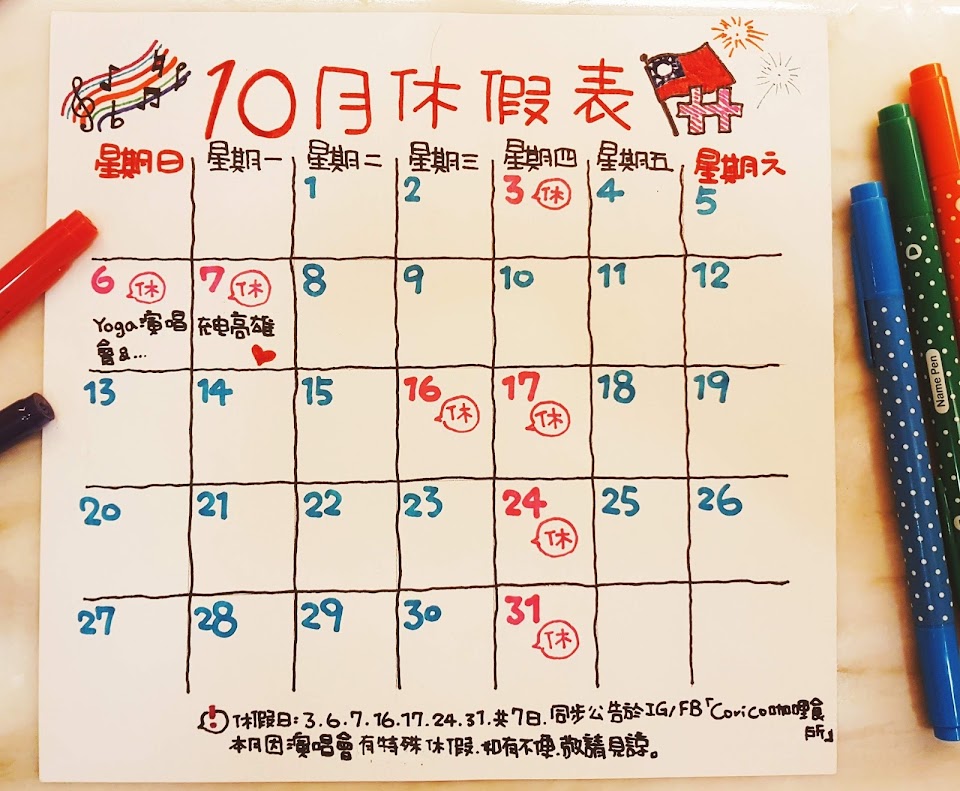 10月休假表
星期日 星期一 星期二 星期三 星期四 星期五 星期六
1 2 3 休 4 5
6 休 7 休 8 9 10 11 12
Yoga演唱 充电高雄
會&...
13 14 15 16 休 17 休 18 19
20 21 22 23 24 休 25 26
27 28 29 30 31 休
! 休假日:3.6.7.16.17.24.31.共7日.同步公告於IG/FB「Corico咖哩食
所」
本月因演唱會有特殊休假.如有不便.敬請見諒。
Name Pen